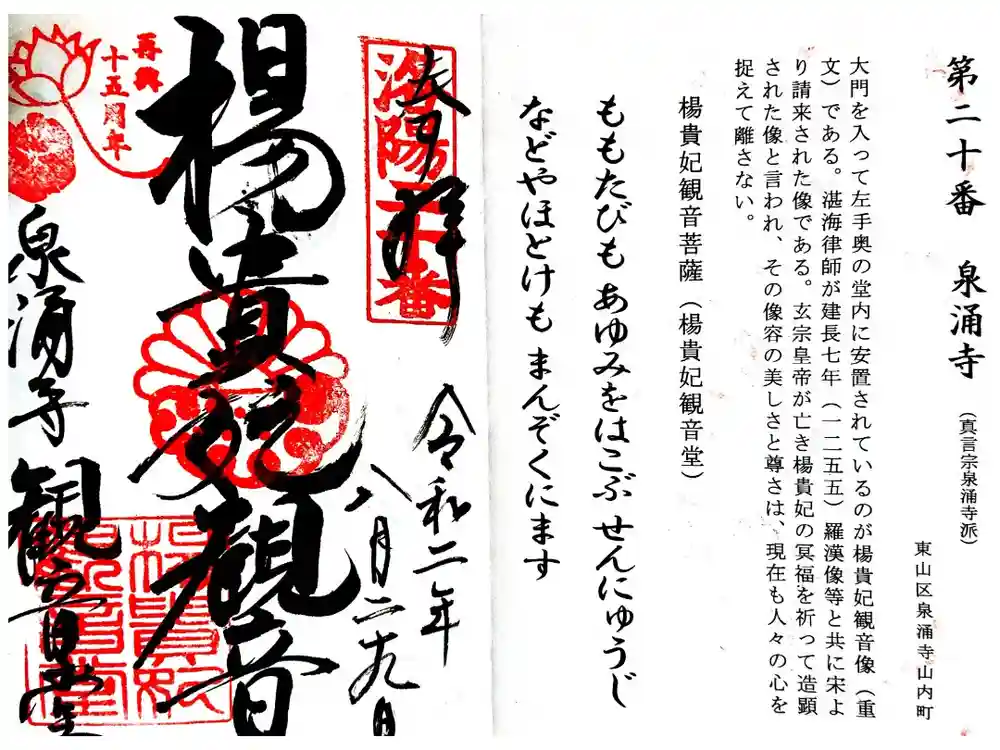 第二十番　泉涌寺（真言宗泉涌寺派）
東山区泉涌寺山内町
大門を入って左手奥の堂内に安置されているのが楊貴妃観音像（重
文）である。湛海律師が建長七年（一二五五）羅漢像等と共に宋よ
り請来された像である。玄宗皇帝が亡き楊貴妃の冥福を祈って造顕
された像と言われ、その像容の美しさと尊さは、現在も人々の心を
捉えて離さない。
楊貴妃観音菩薩（楊貴妃観音堂）
ももたびも あゆみをはこぶ せんにゅうじ
などやほとけも まんぞくにます
奉拝
洛陽二十番
令和二年
八月二十九日
楊貴妃観音
再興
十五周年
泉涌寺
観音堂
楊貴妃
観音堂